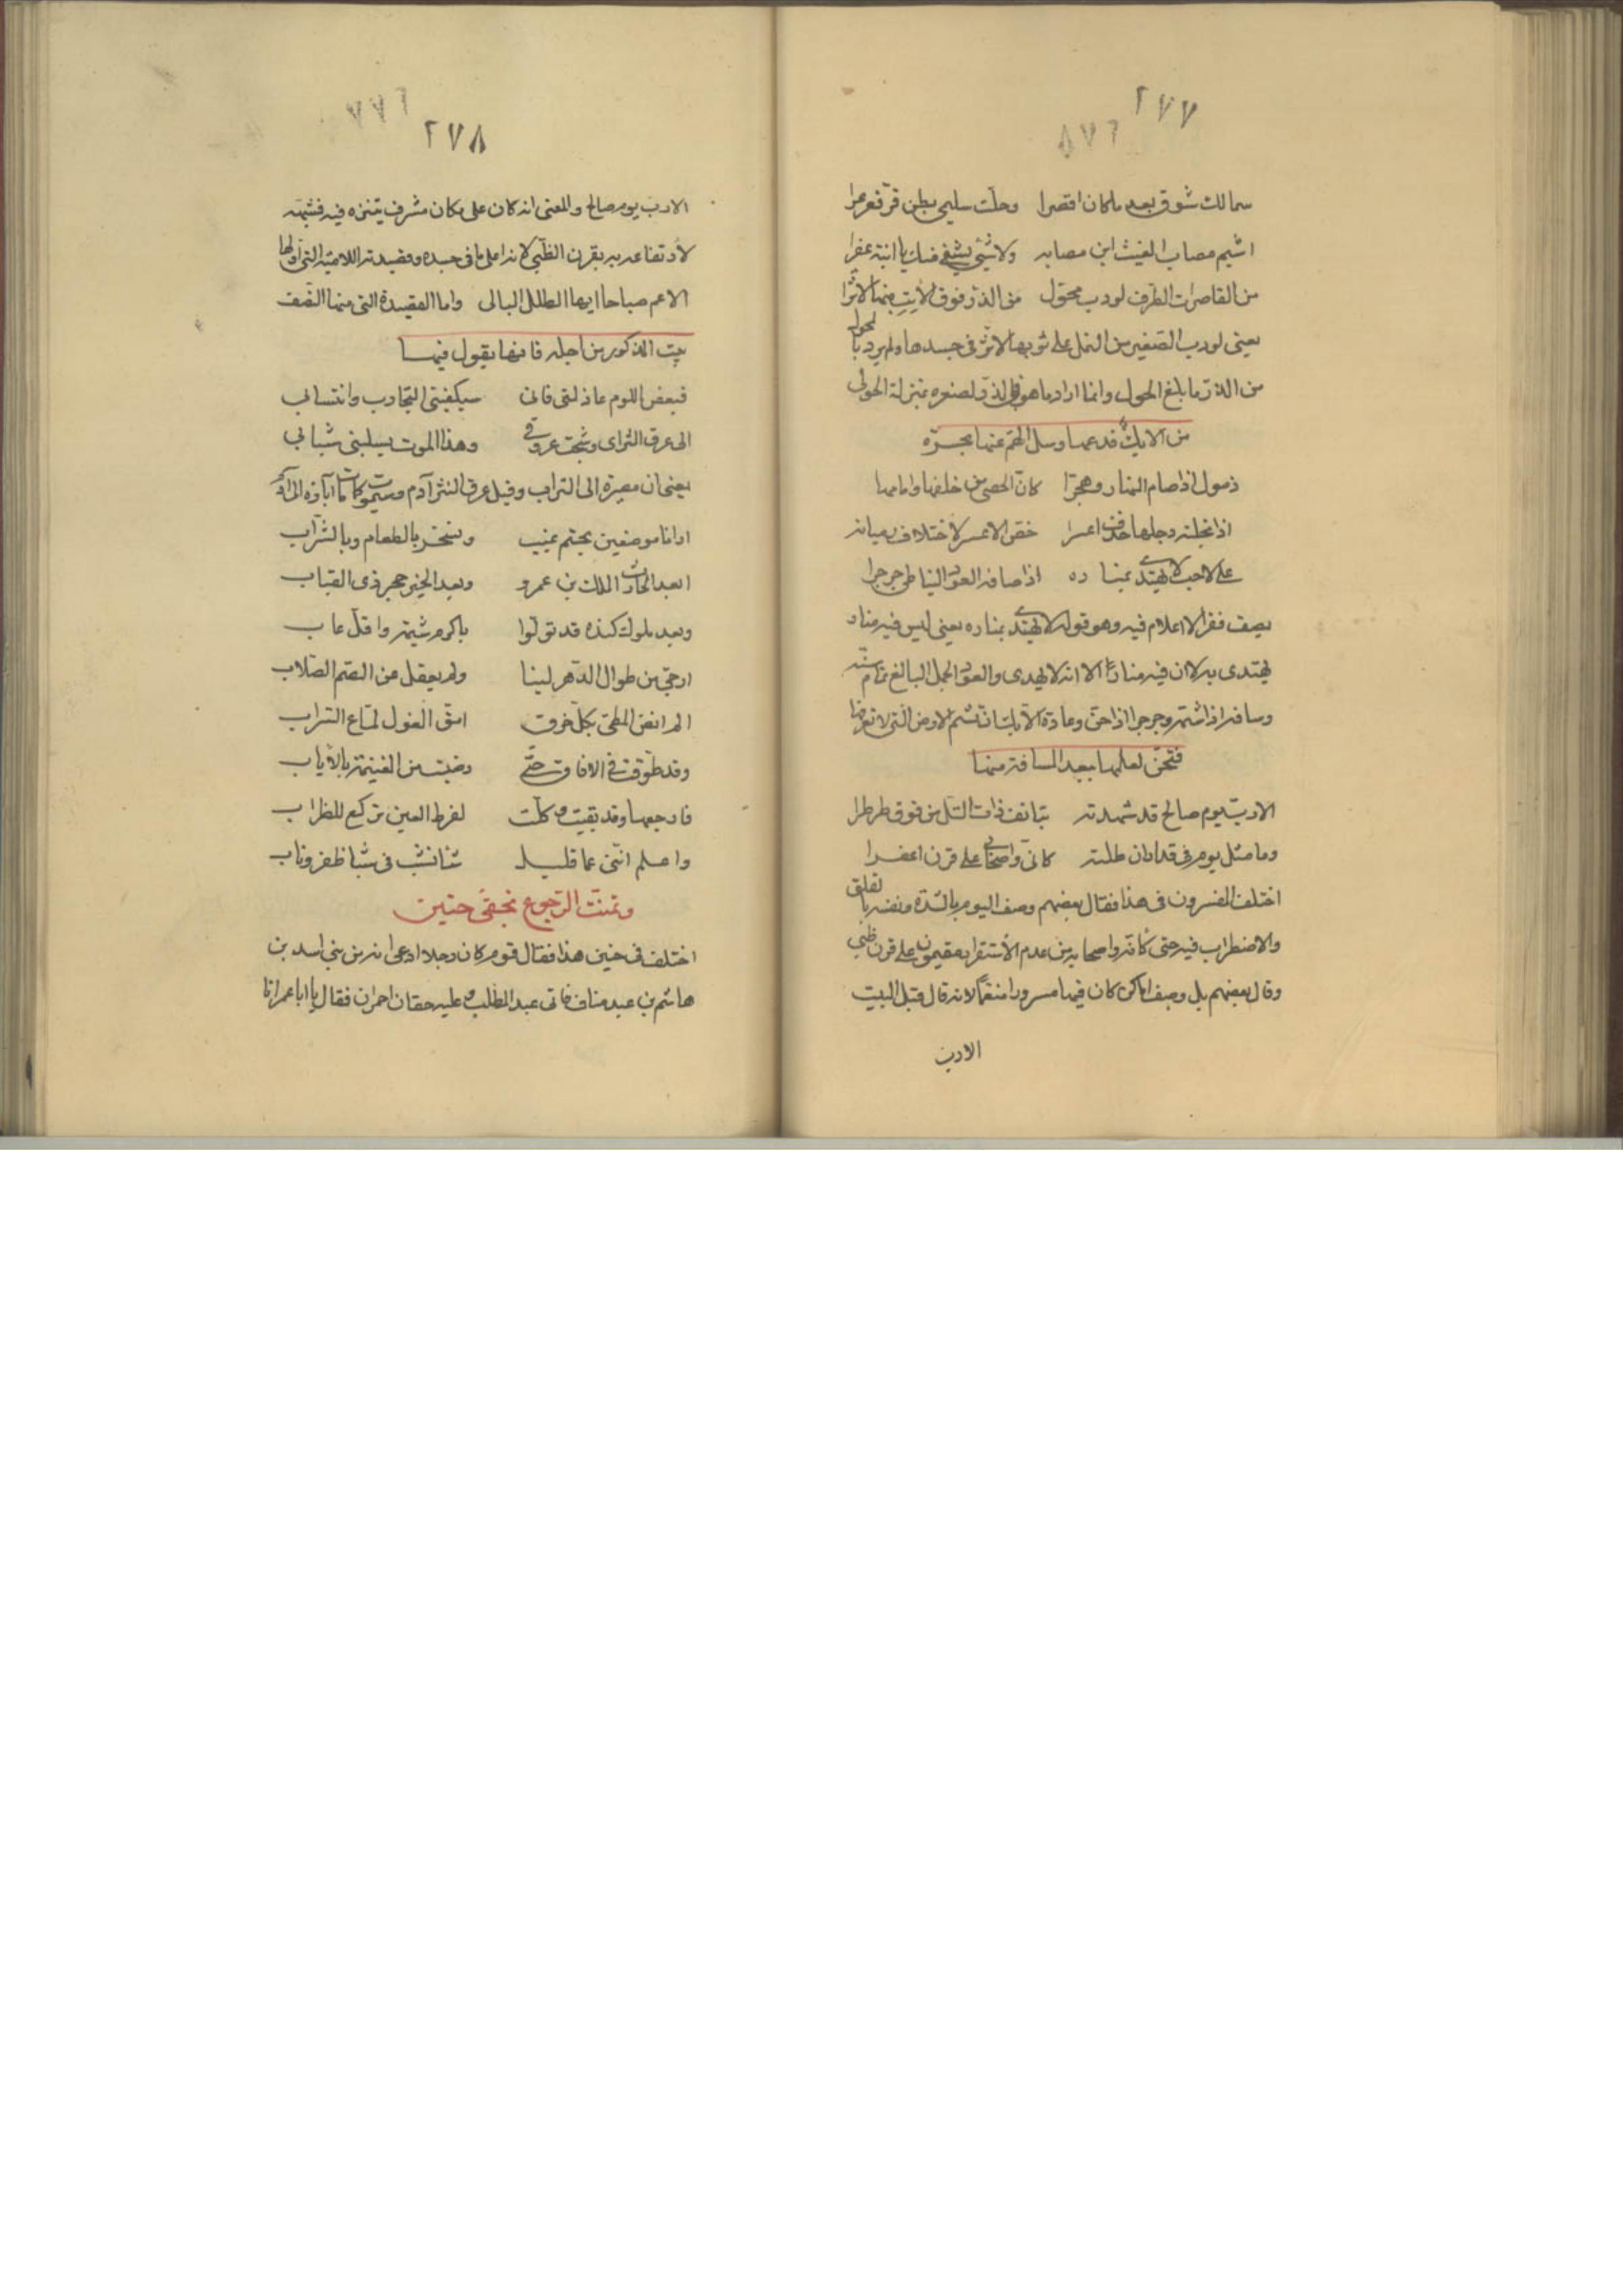 ٢٧٧
٢٧٨
سمالك شوق بعد ماكان اقصرا وحلت سليمى بطن قو فعرعرا
اشيم مصاب الغيث اين مصابه ولا شئ يشفى منك يا ابنة عفزرا
من القاصرات الطرف لو دب محول من الذر فوق الاتب منها لاثرا
يعنى لو دب الصغير من النمل على ثوبها لاثر فى جسدها ولم يرد بالمحول
من الذر ما بلغ الحول وانما اراد ما هو فى الذر لصغره بمنزلة الحولى
من الابل فدعها وسل الهم عنها بجسرة
ذمول اذا صام النهار وهجرا كان الحصى من خلفها وامامها
اذا نجلته رجلها خذف اعسرا خص الاعسر لاختلاف رميانه
على لاحب لا يهتدى بمناره اذا سافه العود النباطى جرجرا
يصف قفرا لا اعلام فيه وهو قوله لا يهتدى بمناره يعنى ليس فيه منار
يهتدى به لا ان فيه منارا الا انه لا يهدى والعود الجمل البالغ تمام سنه
وسافه اذا شمه وجرجر اذا حن وعادة الابل ان تشم الارض التى لا تعرفها
فتحن لعلمها ببعد المسافة منها
الا رب يوم صالح قد شهدته بتاذف ذات التل من فوق طرطرا
وما مثل يوم فى قداران ظلته كانى واصحابى على قرن اعفرا
اختلف المفسرون فى هذا فقال بعضهم وصف اليوم بالشدة ونفسه بالقلق
والاضطراب فيه حتى كانه واصحابه من عدم الاستقرار مقيمون على قرن ظبى
وقال بعضهم بل وصف اماكن كان فيها مسرورا منعما لانه قال قبل البيت
الا رب
٢٧٨
الا رب يوم صالح والمعنى انه كان على مكان مشرف يتنزه فيه فشبهه
لارتفاعه به بقرن الظبى لانه اعلى ما فى جسده وقصيدته اللامية التى اولها
الا عم صباحا ايها الطلل البالى واما القصيدة التى منها النصف
بيت المذكور من اجله فانها يقول فيها
فبعض اللوم عاذلتى فانى سيكفينى التجارب وانتسابى
الى عرق الثرى وشجت عروقى وهذا الموت يسلبنى شبابى
يعنى ان مصيره الى التراب وقيل عرق الثرى آدم
ارانا موضعين بحتم غيب ونسحر بالطعام وبالشراب
ابعد الحارث الملك بن عمرو وبعد الخير حجر ذى القباب
وبعد ملوك كنده قد تولوا باكرم شيمة واقل عاب
ارجى من طوال الدهر لينا ولم يعقل عن الصم الصلاب
الم انض المطى بكل خرق امق الغول لماع السراب
وقد طوفت فى الافاق حتى رضيت من الغنيمة بالاياب
فارجعها وقد بقيت وكلت لفرط العين تركع للظراب
واعلم اننى عما قليل سانشب فى شبا ظفر وناب
وتمنت الرجوع بخفى حنين
اختلف فى حنين هذا فقال قوم كان رجلا ادعى انه من بنى اسد بن
هاشم بن عبد مناف فاتى عبد المطلب وعليه خفان احمران فقال يا ابا عم انا